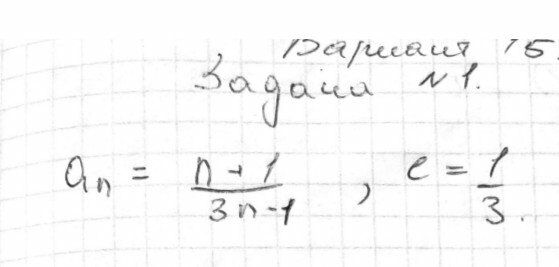 Вариант 15.
Задача №1.
aₙ = (n+1)/(3n-1), e = 1/3.